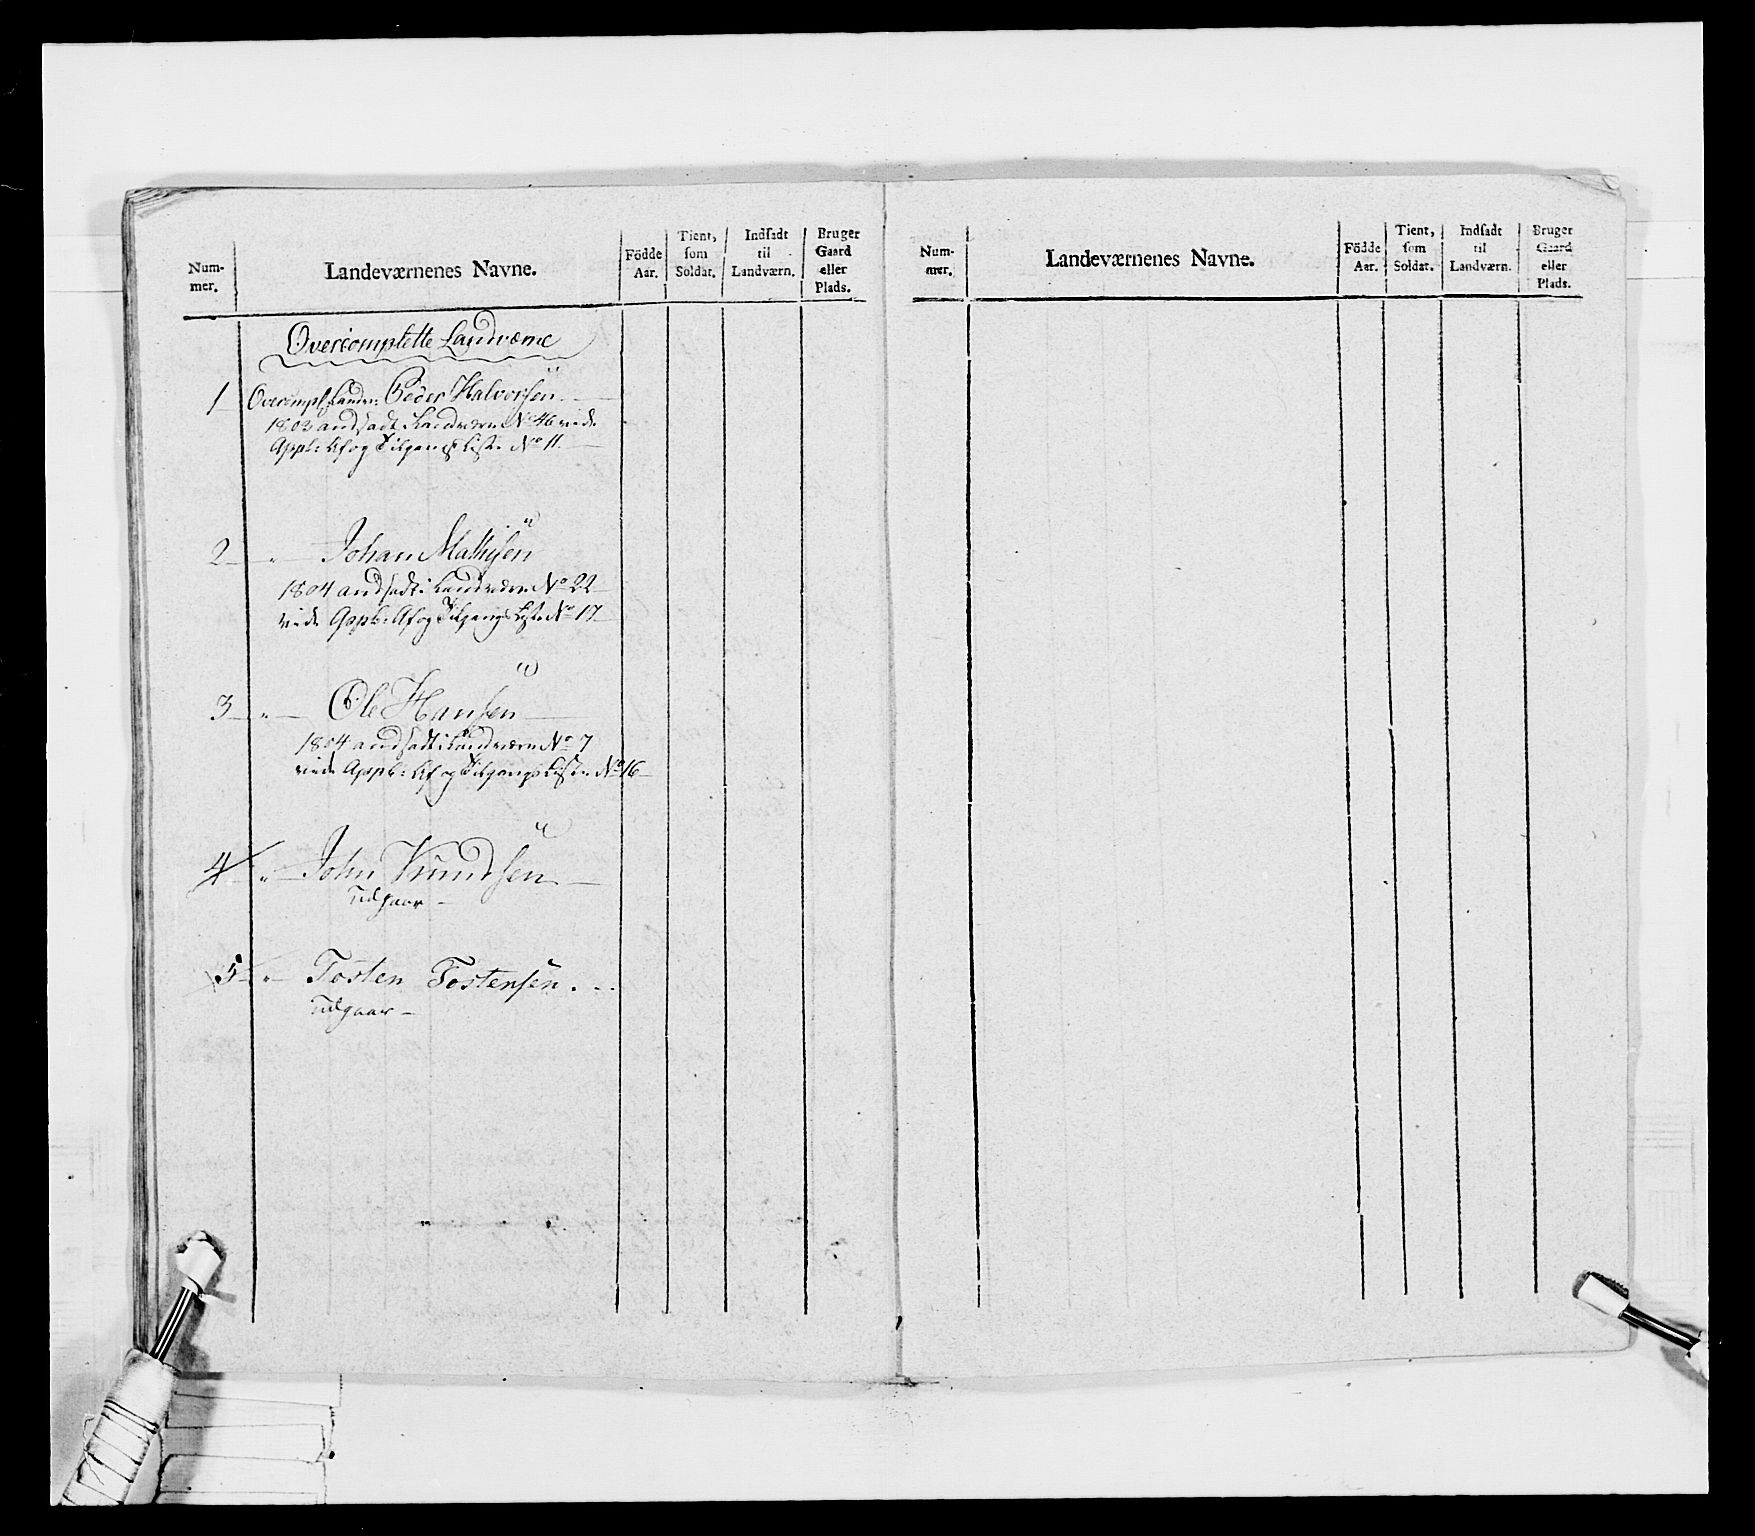 Num-
mer.
Landeværnenes Navne.
Födde
Aar.
Tient,
som
Soldat.
Indsadt
til
Landværn.
Bruger
Gaard
eller
Plads.
Overcomplette Landværne
1 Overcompl. Landv: Peder Halvorsen
1803 andsadt i Landværn No 46 vide
Appb: Af og Tilgangs Liste No 11.
2 " Johan Mathisen
1804 andsadt i Landværn No 22
vide Appb: Af og Tilgangs Liste No 17
3 " Ole Hansen
1804 andsadt i Landværn No 7
vide Appb: Af og Tilgangs Liste No 16
4 " John Knudsen
Udgaar
5 " Tosten Tostensen.
Udgaar
Num-
mer.
Landeværnenes Navne.
Födde
Aar.
Tient,
som
Soldat.
Indsadt
til
Landværn.
Bruger
Gaard
eller
Plads.